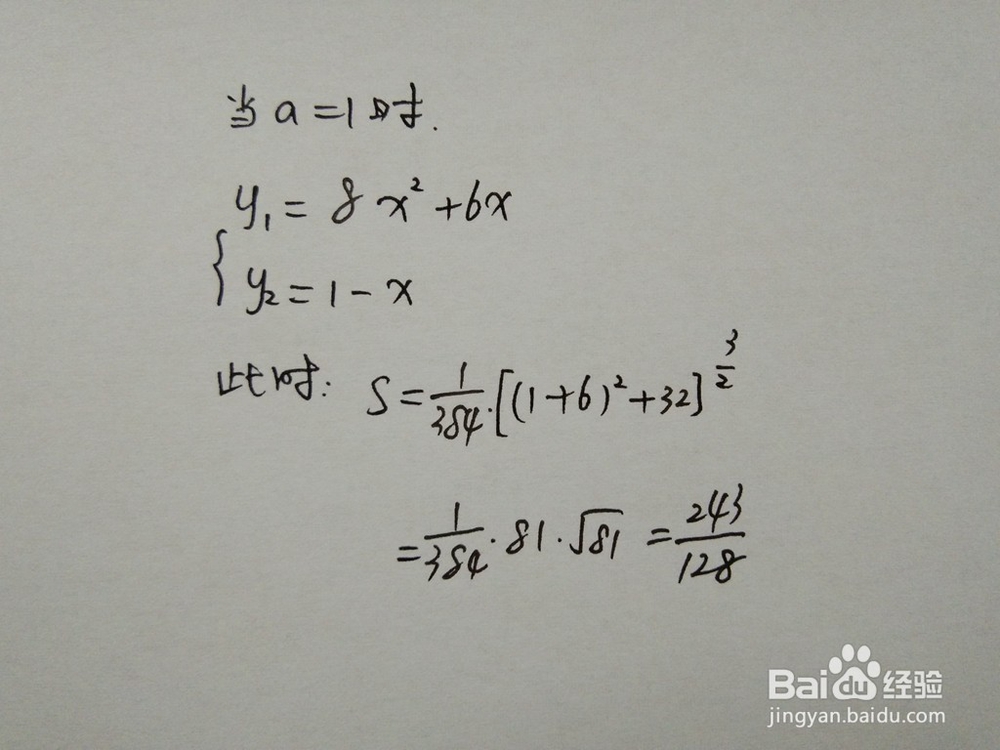 当 a = 1 时.
y₁ = 8x² + 6x
{ y₂ = 1 - x
此时: S = 1/384 · [(1+6)² + 32]^(3/2)
= 1/384 · 81 · √81 = 243/128
Baidu 经验
jingyan.baidu.com